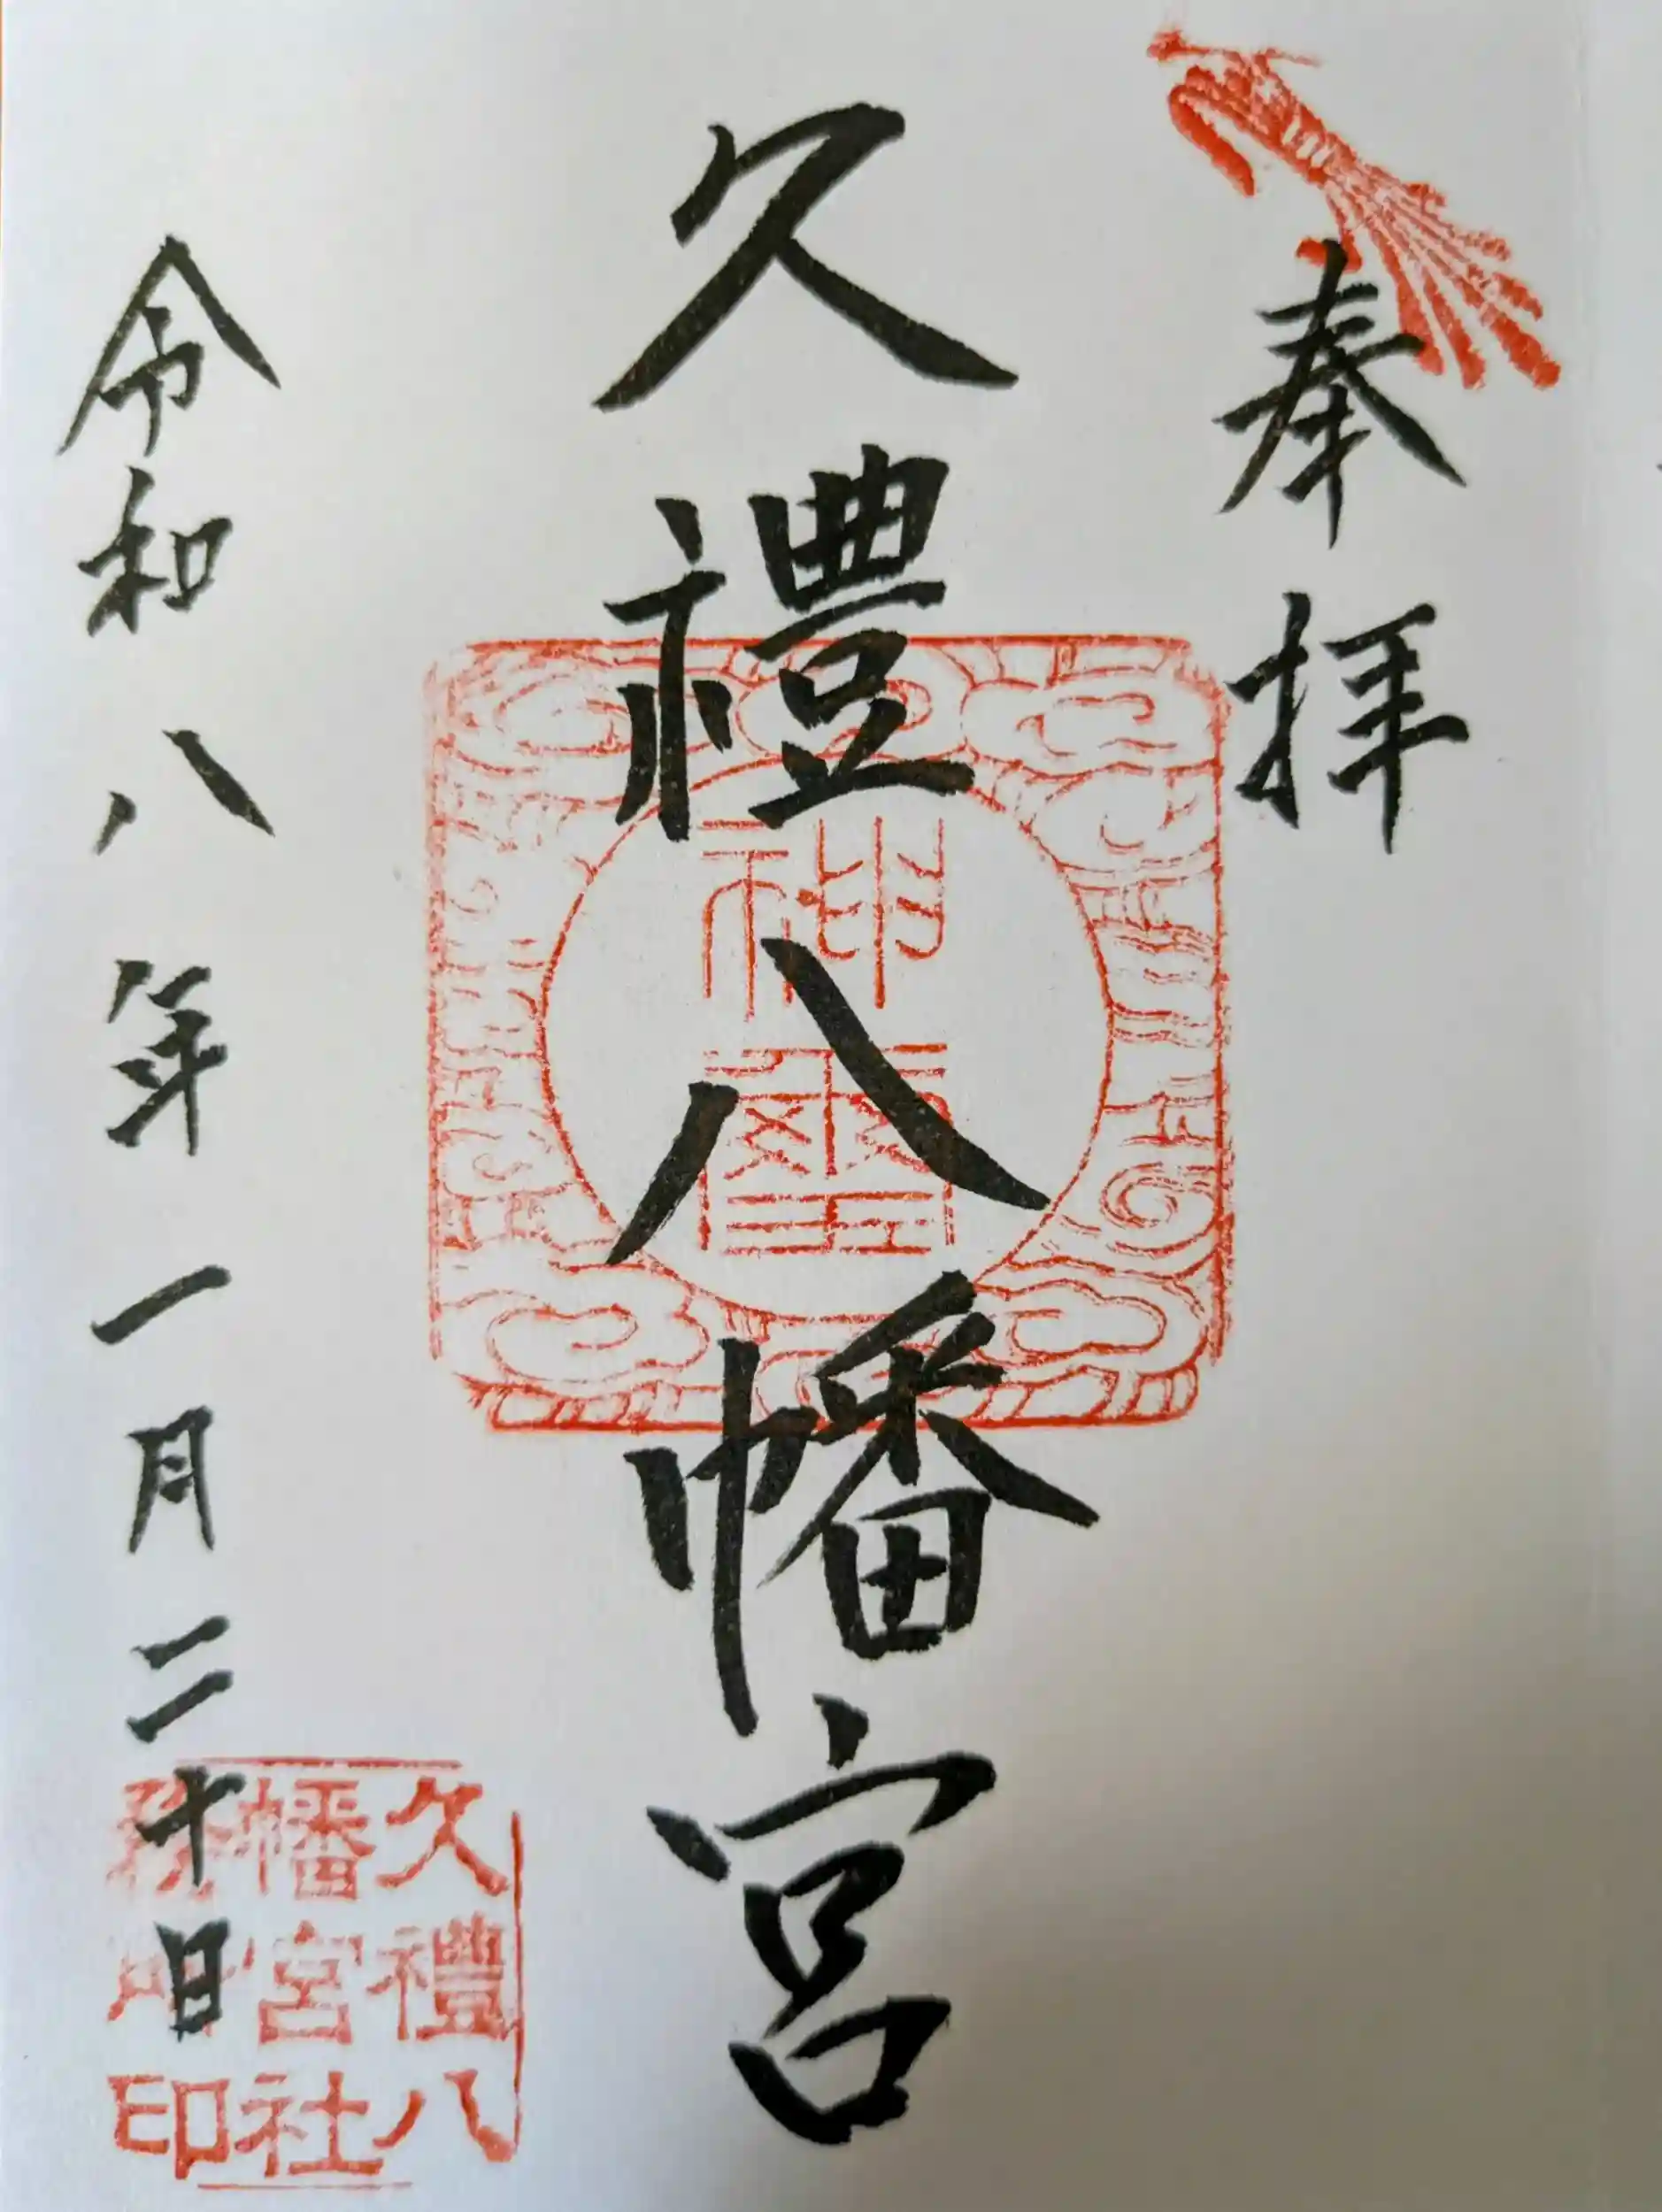 奉拝
久禮八幡宮
神璽
令和八年一月二十日
久禮八
幡宮社
務所印